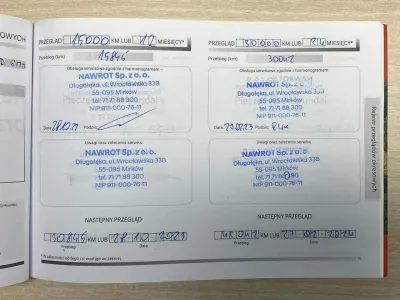 PRZEGLĄD 15000 KM LUB 12 MIESIĘCY*
Przebieg (km) 15845
Obsługa serwisowa zgodnie z harmonogramem
NAWROT Sp. z o.o.
Długołęka, ul. Wrocławska 33B
55-095 Mirków
tel. 71 71 88 300
NIP 911-000-76-11
Data Podpis
Uwagi oraz zalecenia serwisu
NAWROT Sp. z o.o.
Długołęka, ul. Wrocławska 33B
55-095 Mirków
tel. 71 71 88 300
NIP 911-000-76-11
NASTĘPNY PRZEGLĄD
30845 KM LUB 28-10-2023
Przebieg Data
PRZEGLĄD 30000 KM LUB 24 MIESIĘCY*
Przebieg (km) 30042
Obsługa serwisowa zgodnie z harmonogramem
NAWROT Sp. z o.o.
Długołęka, ul. Wrocławska 33B
55-095 Mirków
tel. 71 71 88 300
NIP 911-000-76-11
Data Podpis
Uwagi oraz zalecenia serwisu
NAWROT Sp. z o.o.
Długołęka, ul. Wrocławska 33B
55-095 Mirków
tel. 71 71 88 300
NIP 911-000-76-11
NASTĘPNY PRZEGLĄD
KM LUB
Przebieg Data
Rejestr przeglądów okresowych